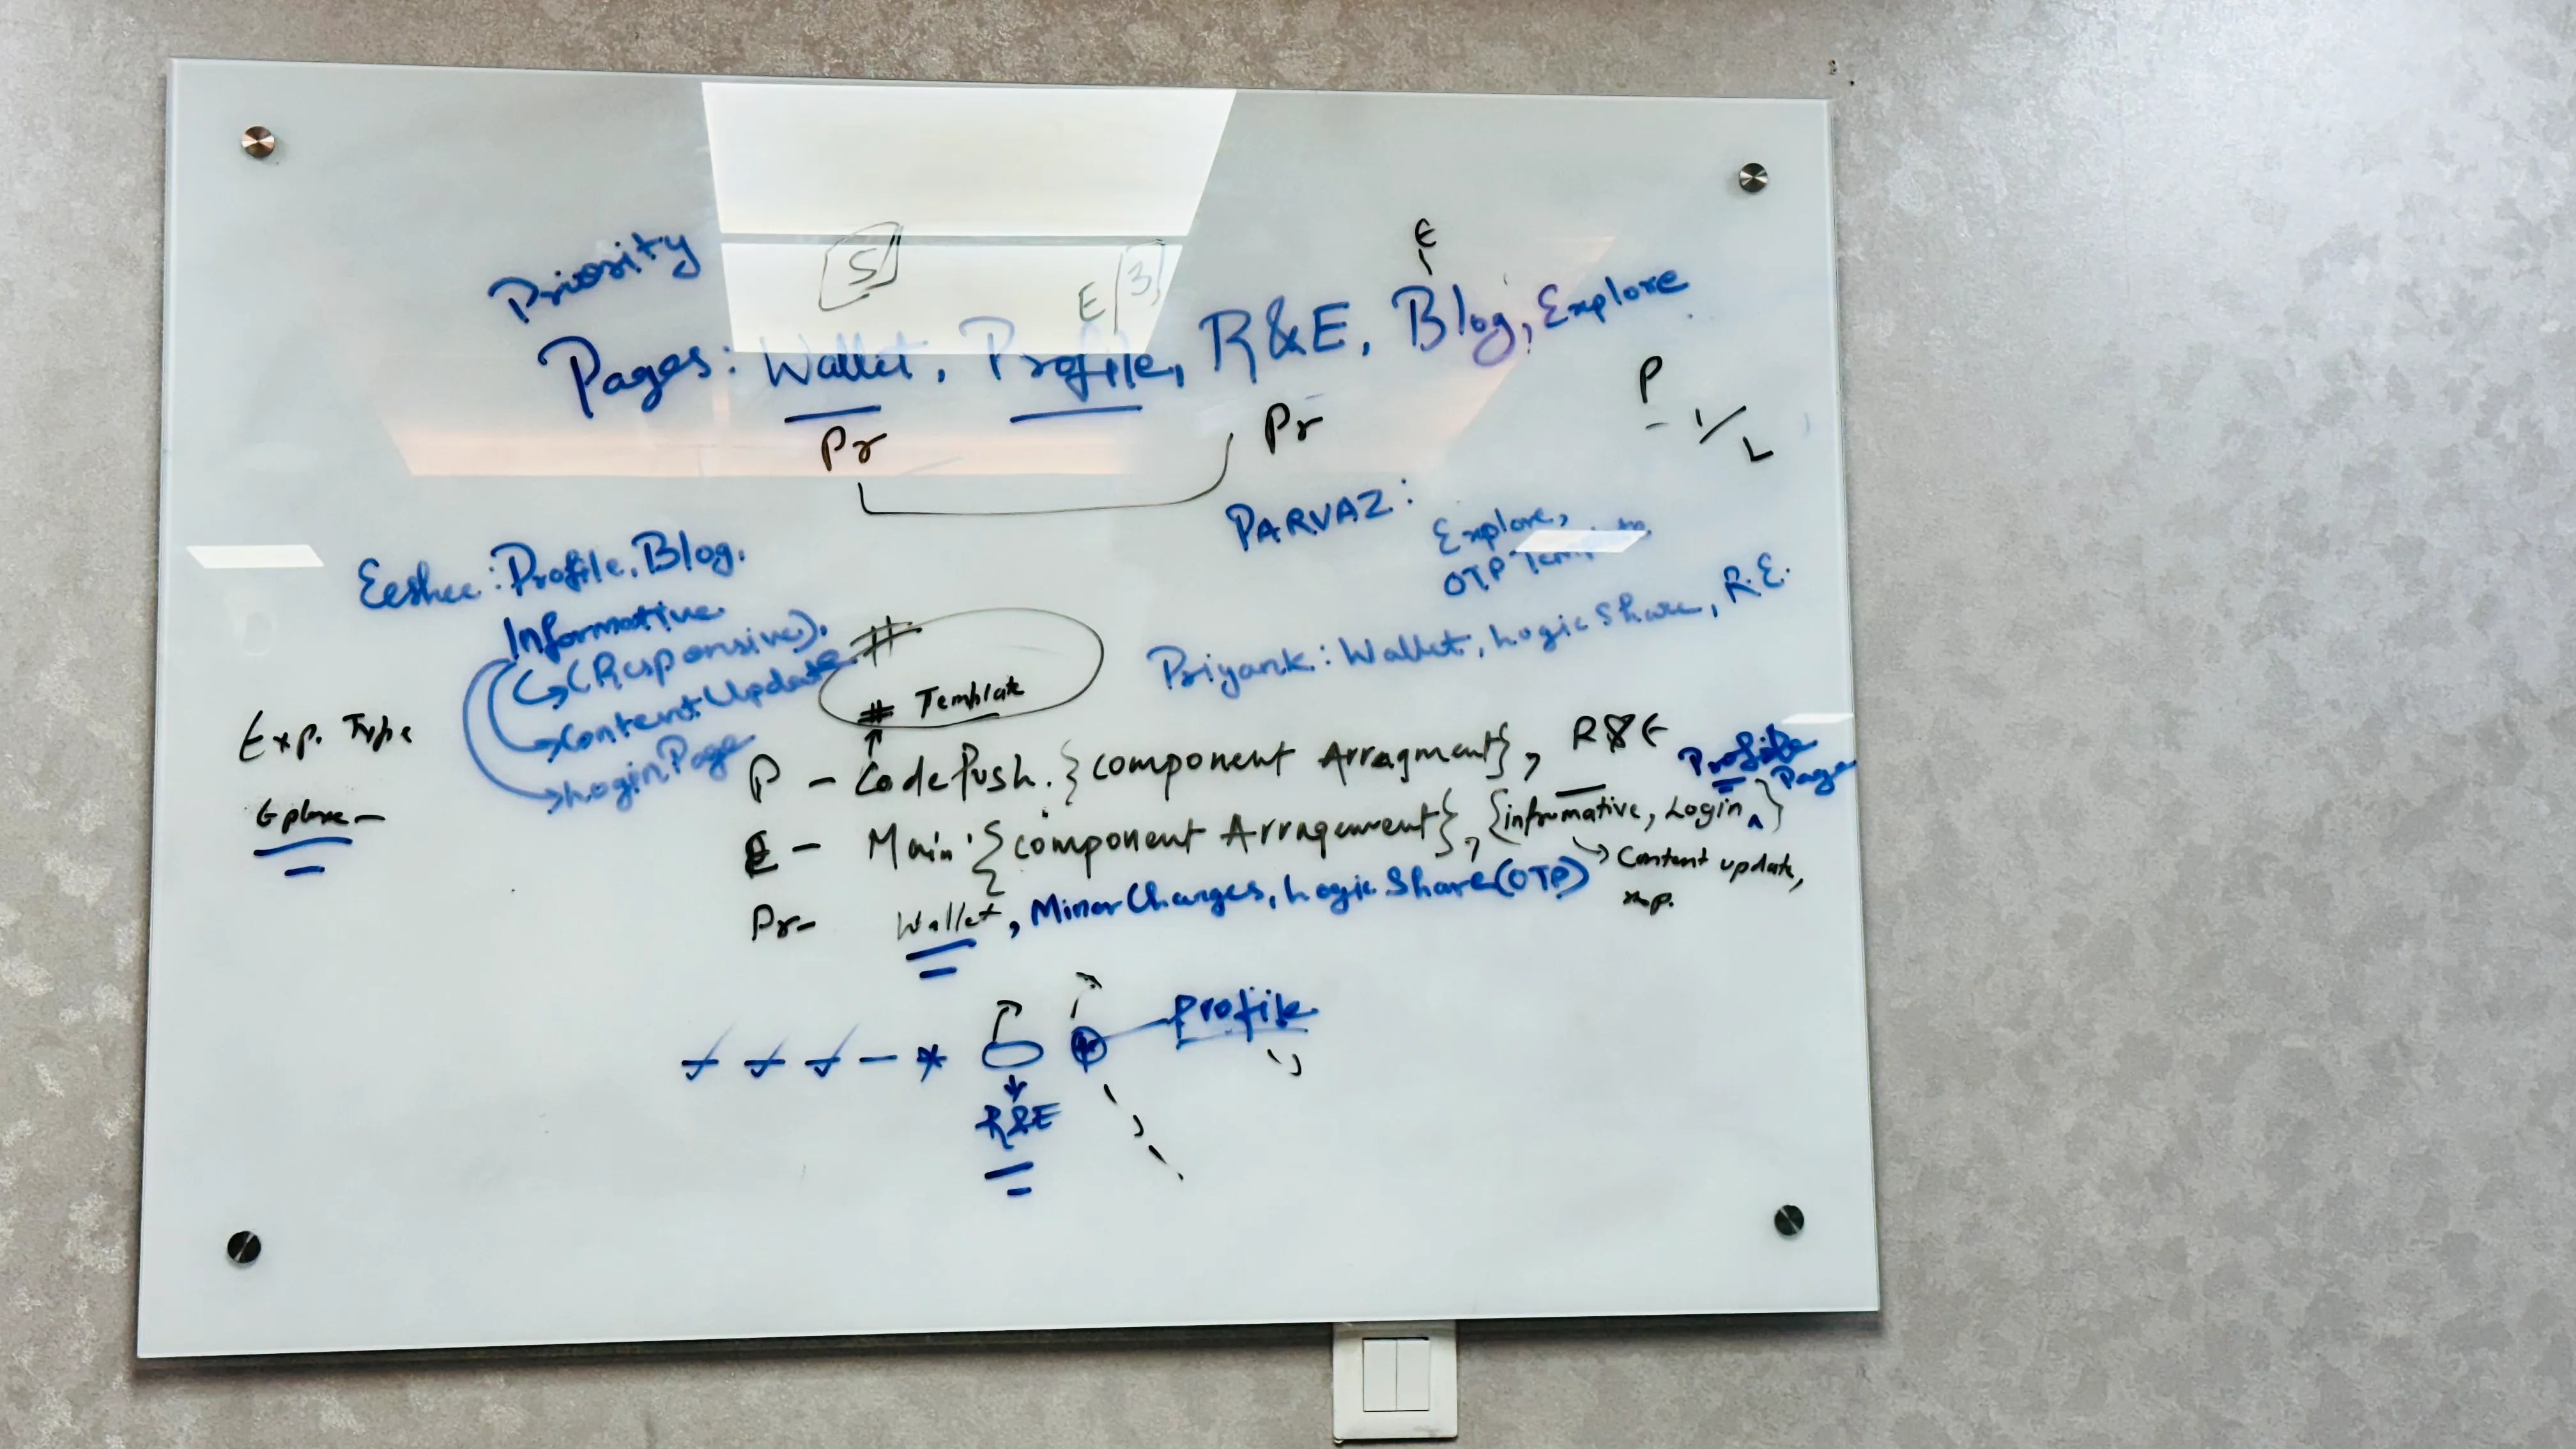 Priority
S
E 3
E
Pages: Wallet, Profile, R&E, Blog, Explore
Pr
Pr
P
L
PARVAZ:
Explore,
OTP
Eeshee: Profile, Blog.
Informative
(Responsive).
Content Update
Login Page
#
# Template
Priyank: Wallet, Logic Share, R.E.
Exp. Type
P - Code Push. {component Arragment}, R&E Profile Page
E - Main {component Arragement}, {informative, Login }
Content update,
Pr- Wallet, Minor Changes, Logic Share (OTP)
Profile
R&E